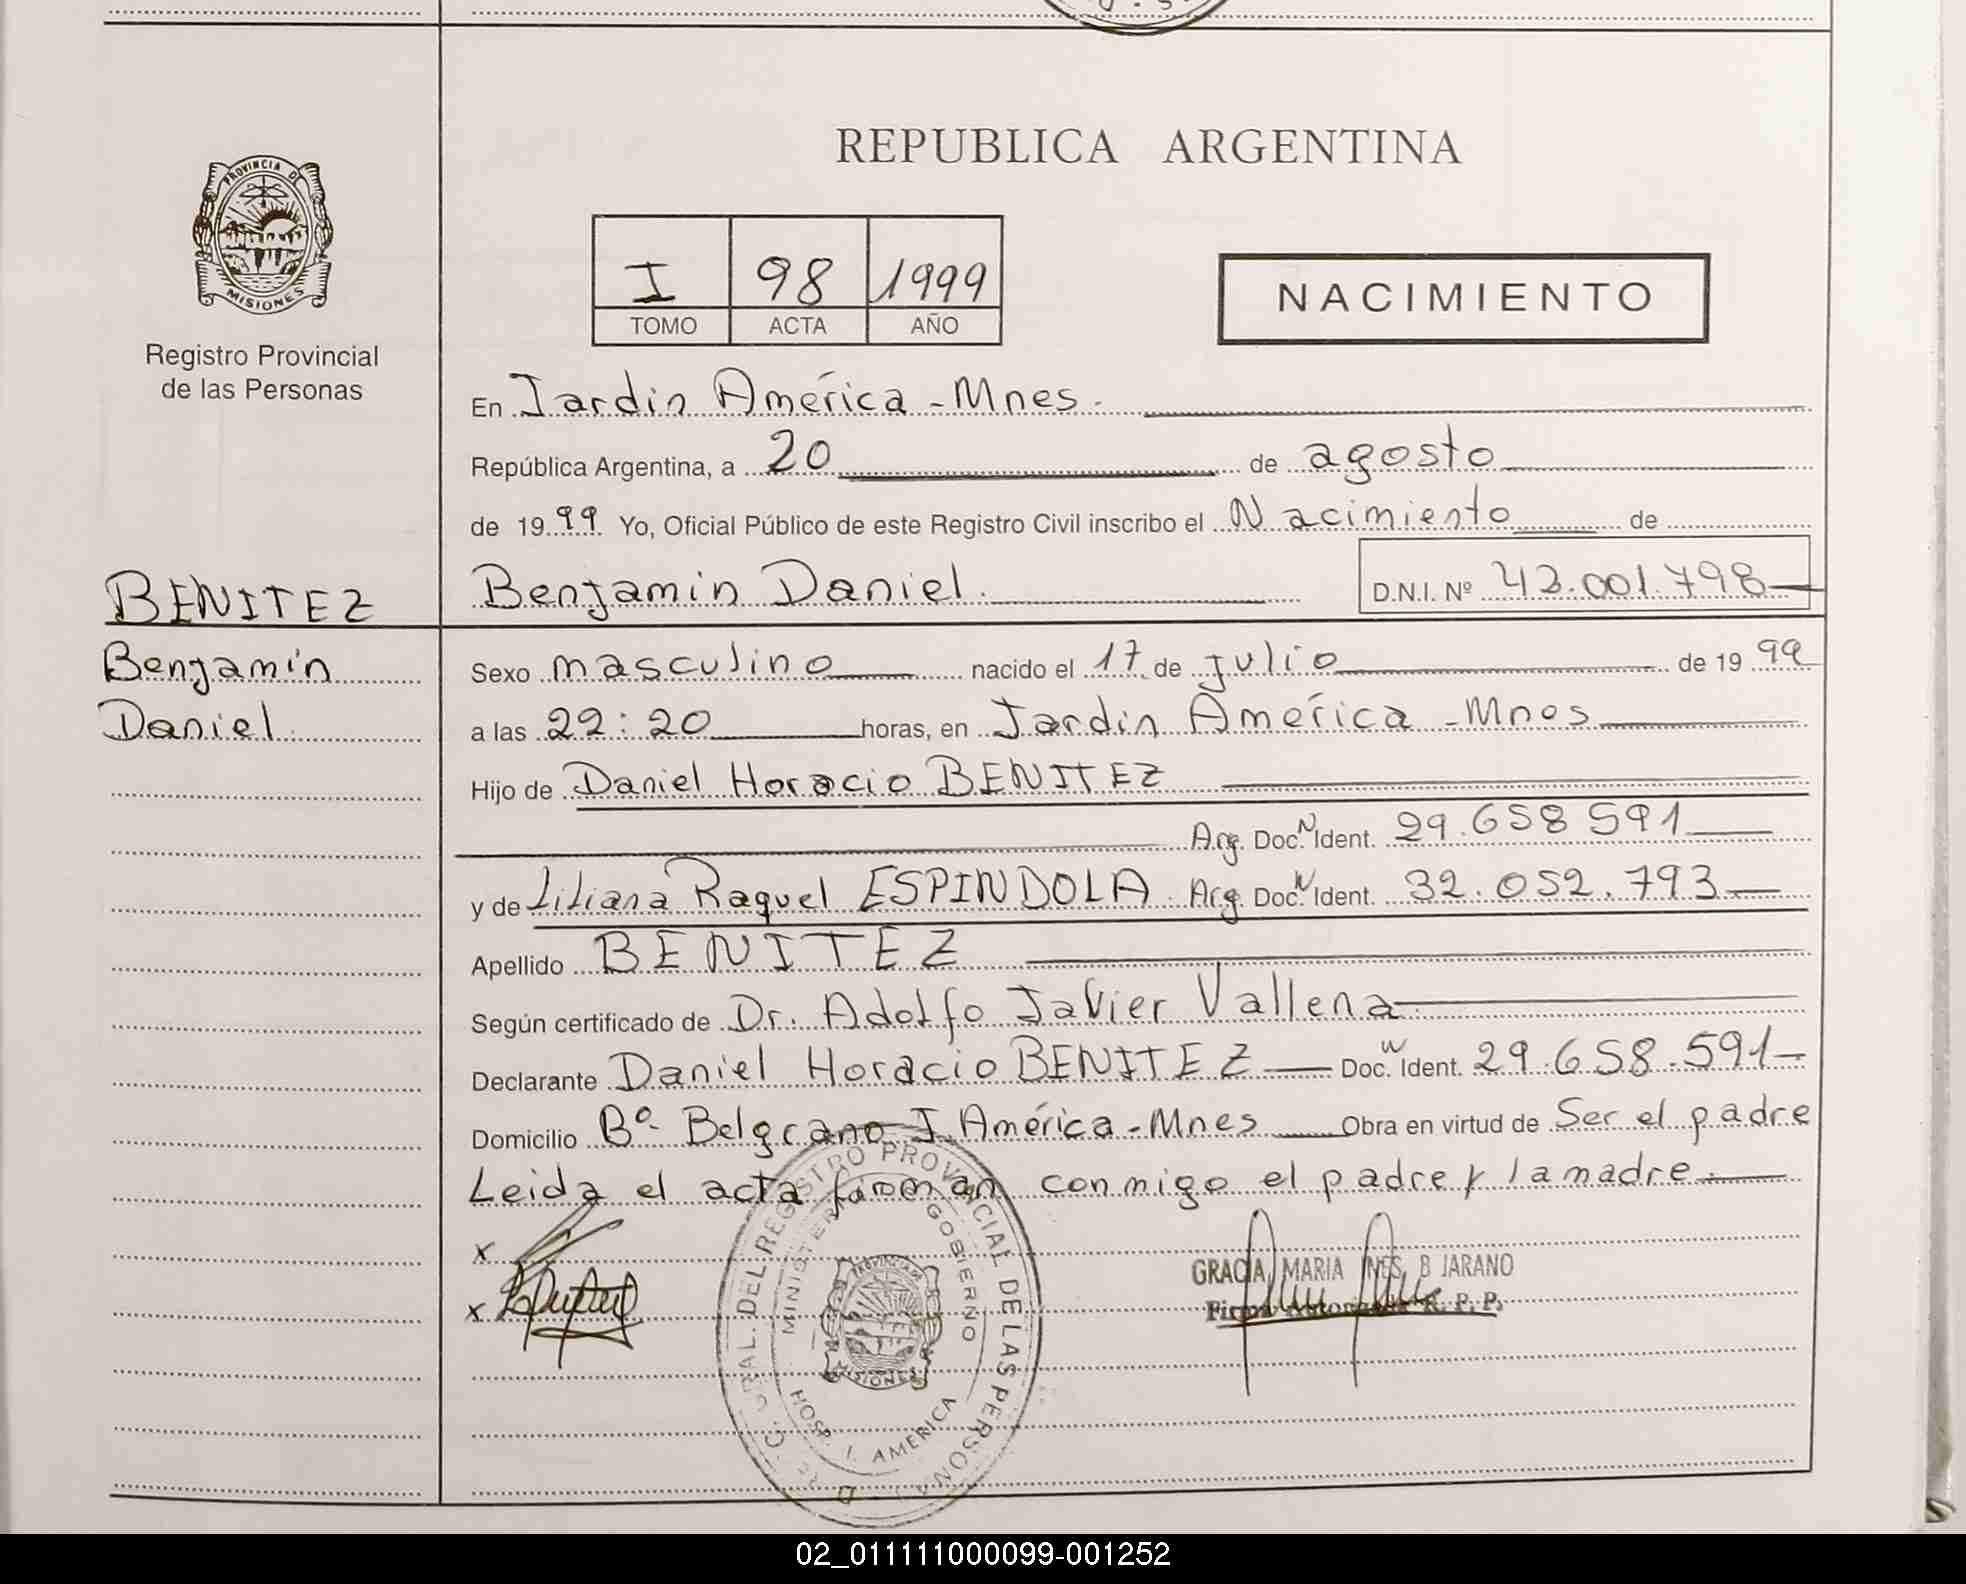 REPUBLICA ARGENTINA
PROVINCIA DE
MISIONES
Registro Provincial
de las Personas
I 98 1999
TOMO ACTA AÑO
NACIMIENTO
En Jardín América - Mnes.
República Argentina, a 20 de agosto
de 1999 Yo, Oficial Público de este Registro Civil inscribo el Nacimiento de
BENITEZ
Benjamín Daniel. D.N.I. Nº 42.001.798
Benjamín
Daniel.
Sexo masculino nacido el 17 de julio de 1999
a las 22:20 horas, en Jardín América - Mnes
Hijo de Daniel Horacio BENITEZ
Arg. Doc. N Ident. 29.658 591
y de Liliana Raquel ESPINDOLA. Arg. Doc. N Ident. 32.052.793
Apellido BENITEZ
Según certificado de Dr. Adolfo Javier Vallena
Declarante Daniel Horacio BENITEZ Doc. N Ident. 29.658.591
Domicilio Bº Belgrano J. América - Mnes Obra en virtud de Ser el padre
Leida el acta firman conmigo el padre y la madre.
x
x
GRACIA MARIA INES B JARANO
Firma Autorizada R. P. P.
DIREC. GRAL. DEL REGISTRO PROVINCIAL DE LAS PERSONAS
MINISTERIO GOBIERNO
PROVINCIA DE
MISIONES
HOSP. J. AMERICA
02_011111000099-001252